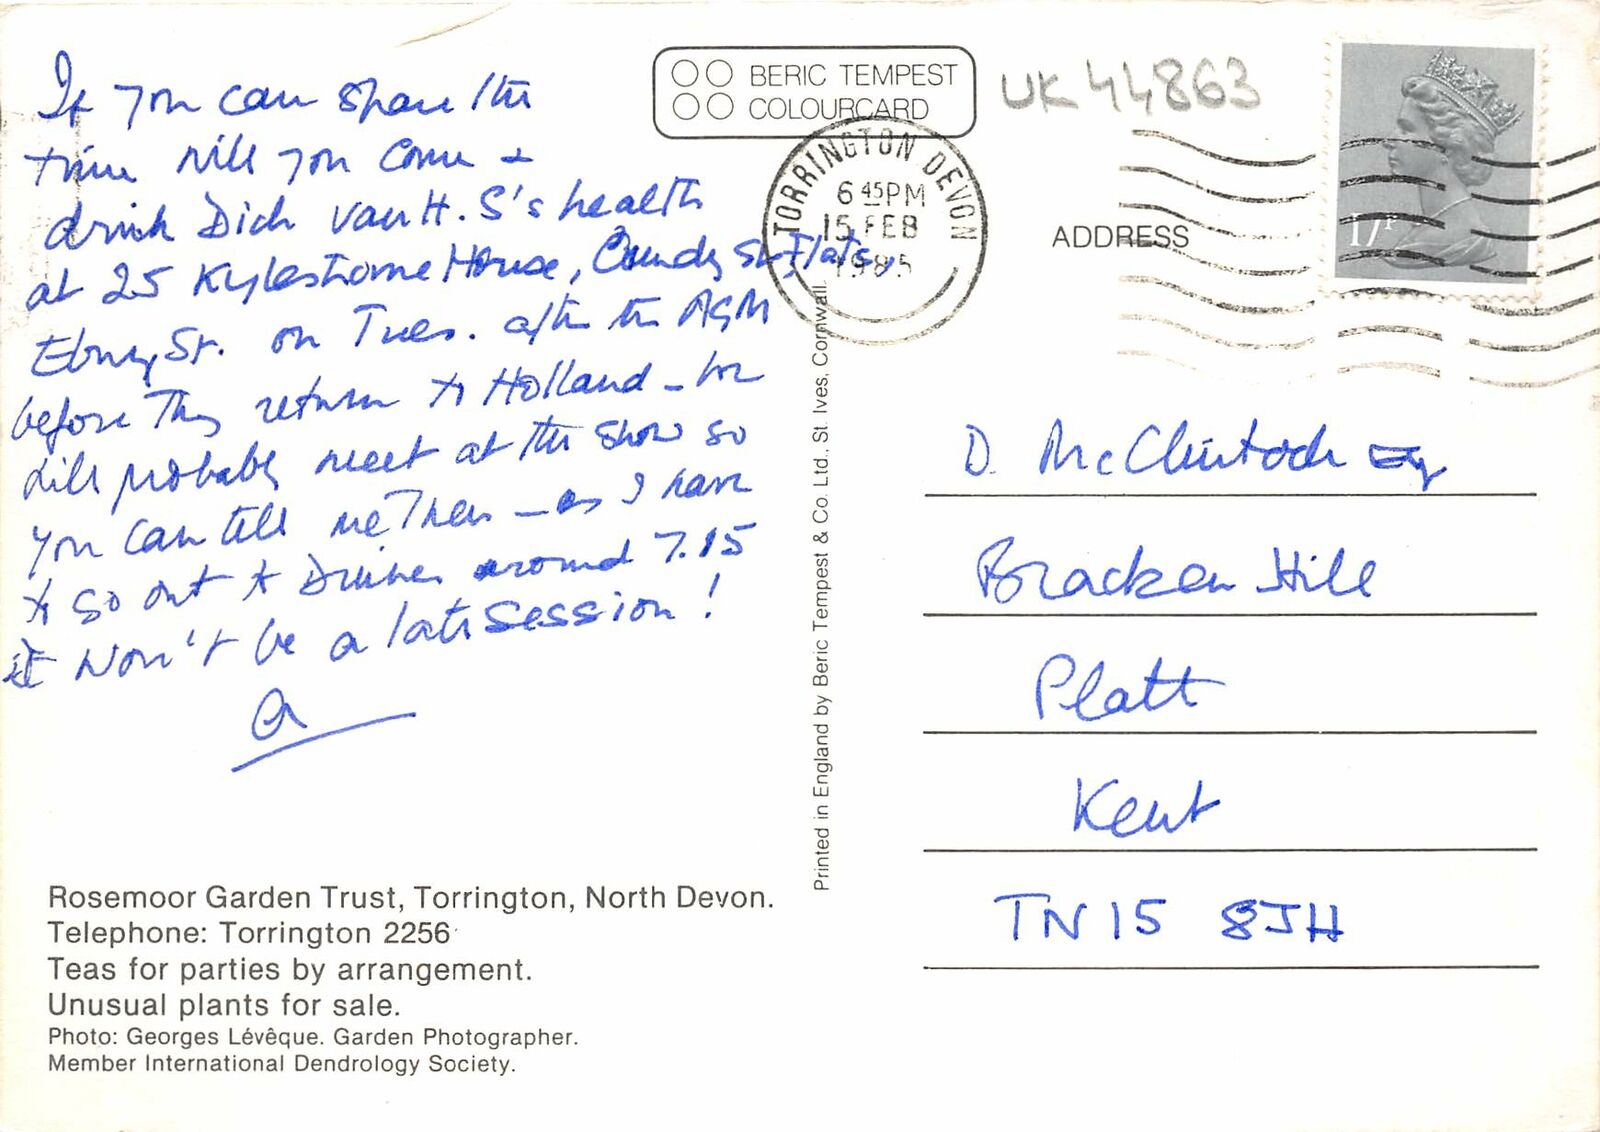 If you can spare the
time will you come &
drink Dick van H. S's health
at 25 Kylestrome House, Cundy St. Flats,
Ebury St. on Tues. after the AGM
before they return to Holland – we
will probably meet at the show so
you can tell me then – as I have
to go out to dinner around 7.15
it won't be a late session!
a
Rosemoor Garden Trust, Torrington, North Devon.
Telephone: Torrington 2256
Teas for parties by arrangement.
Unusual plants for sale.
Photo: Georges Lévêque. Garden Photographer.
Member International Dendrology Society.
Printed in England by Beric Tempest & Co. Ltd., St. Ives, Cornwall.
BERIC TEMPEST
COLOURCARD
UK 44863
TORRINGTON DEVON
6 45PM
15 FEB
1985
17P
ADDRESS
D. McClintock Esq
Bracken Hill
Platt
Kent
TN15 8JH